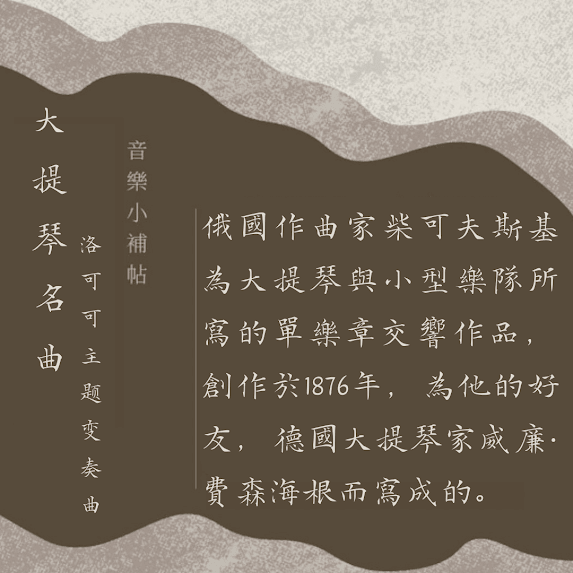 大提琴名曲
洛可可主题变奏曲
音樂小補帖
俄國作曲家柴可夫斯基
為大提琴與小型樂隊所
寫的單樂章交響作品，
創作於1876年，為他的好
友，德國大提琴家威廉·
費森海根而寫成的。